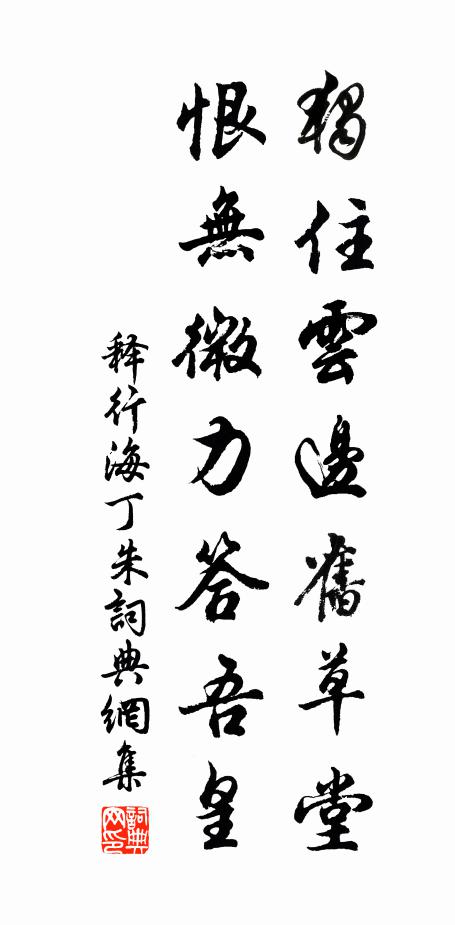 獨住雲邊舊草堂
恨無微力答吾皇
释行海丁朱詞典網集
詞典
网印